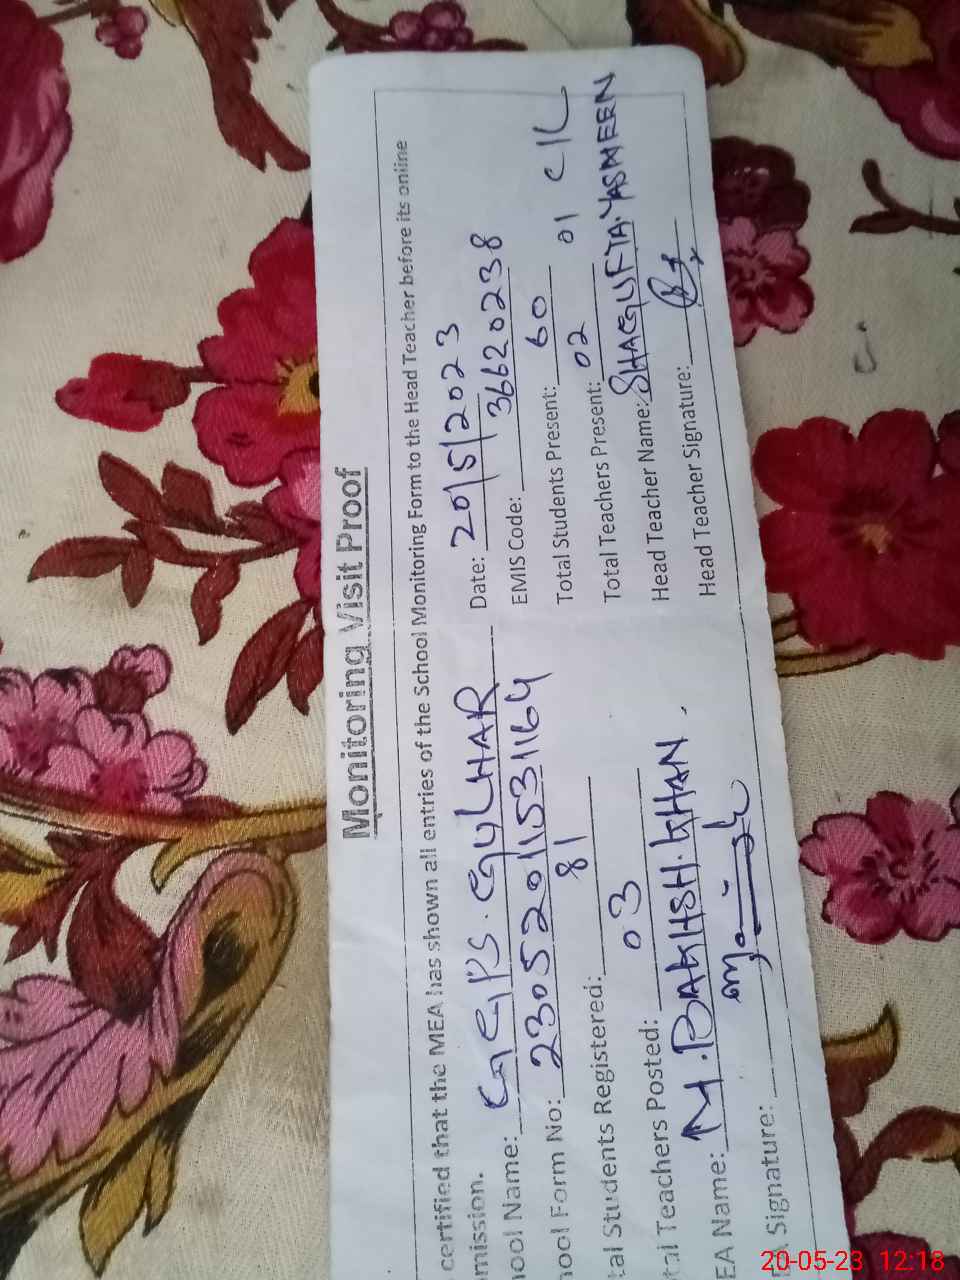 Monitoring Visit Proof
certified that the MEA has shown all entries of the School Monitoring Form to the Head Teacher before its online
mission.
hool Name: GGPS. GULHAR Date: 20/5/2023
hool Form No: 230520115331164 EMIS Code: 36620238
tal Students Registered: 81 Total Students Present: 60
tal Teachers Posted: 03 Total Teachers Present: 02 01 C/L
EA Name: M.BAKHSH.KHAN. Head Teacher Name: SHAGUFTA.YASMEEN
A Signature: Head Teacher Signature:
20-05-23 12:18